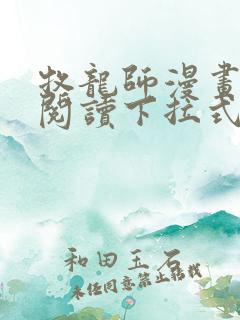 牧龍師漫畫
閱讀下拉式
和田玉石
未经同意禁止转载